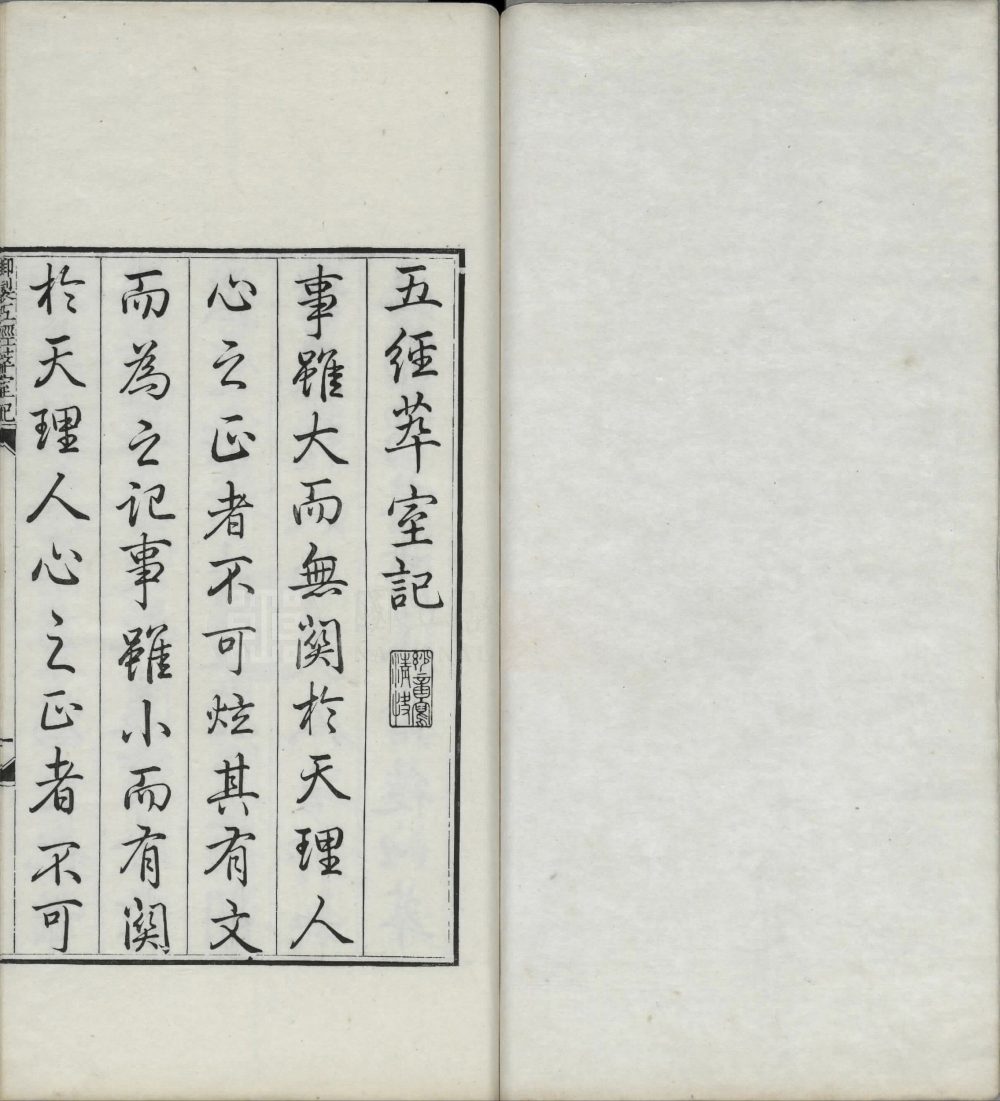 五經萃室記
事雖大而無關於天理人
心之正者不可炫其有文
而為之記事雖小而有關
於天理人心之正者不可
御製五經萃室記
一